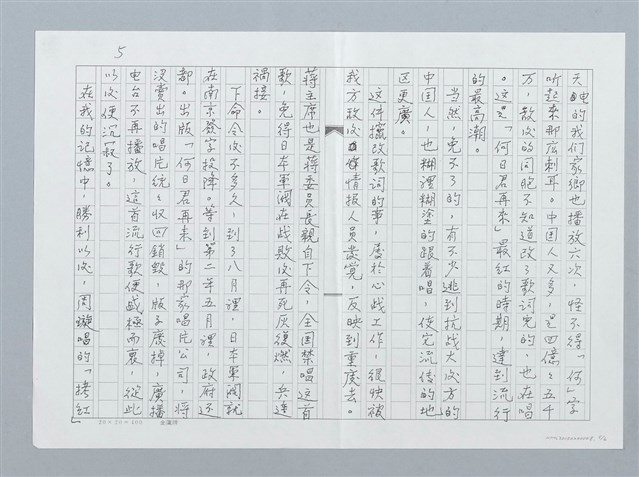 5
天电的我们家鄉也播放六次，怪不得「何」字
听起来那広刺耳。中国人又多，是四億々五千
万，散改的同胞不知道改了歌词完的，也在唱
。這是「何日君再来」最紅的時期，達到流行
的最高潮。
当然，免不了的，有不少逃到抗战大後方的
中国人，也糊裡糊塗的跟着唱，使它流传的地
区更廣。
這件擅改歌词的事，属於心战工作，很快被
我方敌後情报人員發覚，反映到重慶去。
蒋主席也是蒋委員長親自下令，全国禁唱這首
歌，免得日本軍阀在战敗後再死灰復燃，兵連
禍接。
下命令後不多久，到了八月裡，日本軍阀就
在南京簽字投降。等到第二年五月裡，政府还
都。出版「何日君再来」的那家唱片公司，将
没賣出的唱片統々收回銷毀，版子廃掉，廣播
电台不再播放，這首流行歌便盛極而衰，從此
以後便沉寂了。
在我的记憶中，勝利以後，周璇唱的「拷紅」
20×20=400 金鷹牌